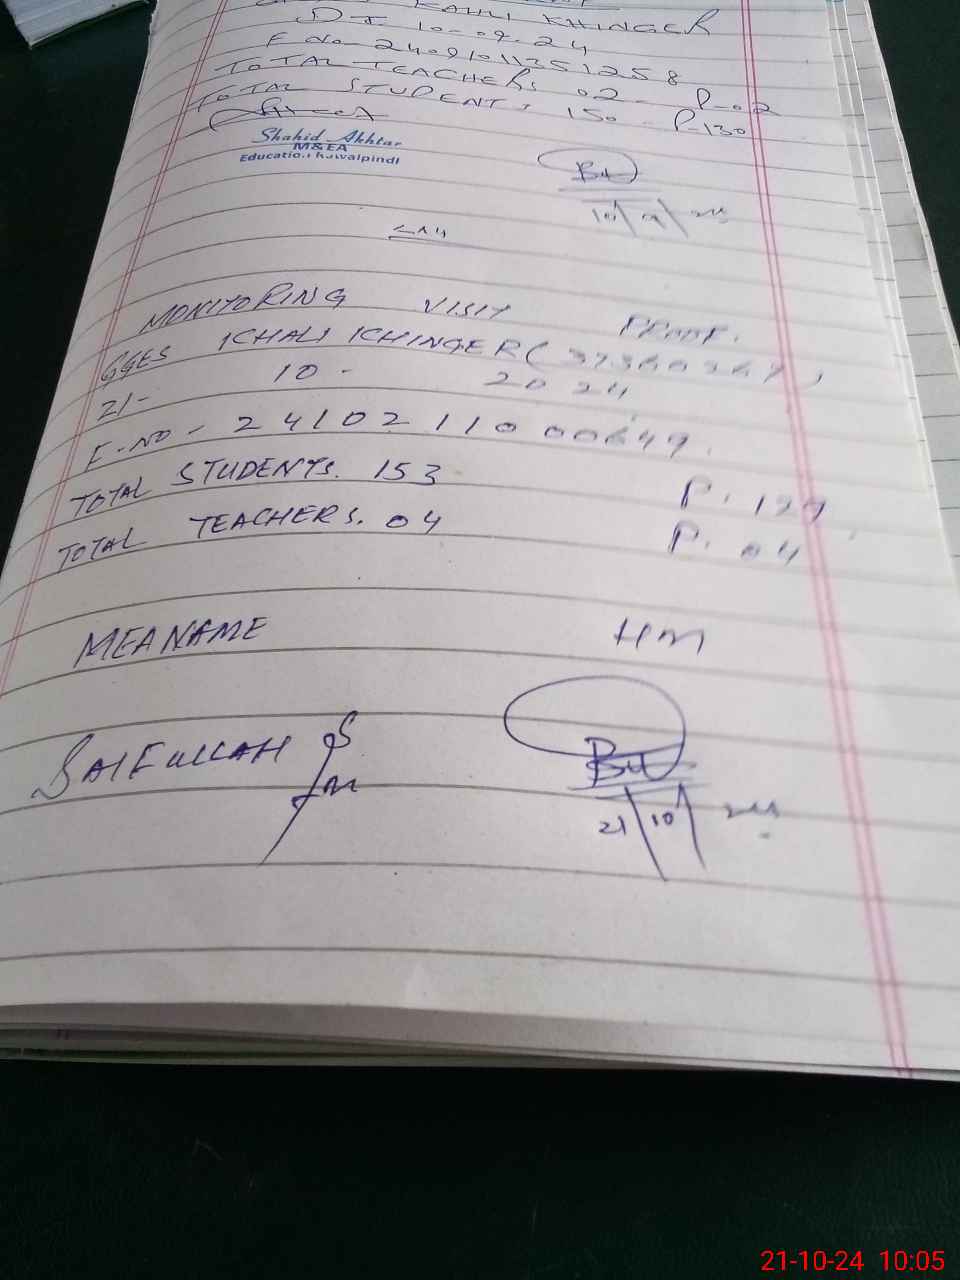 KAHLI KHINGER
DT 10-09-24
E No- 2409101151258
TOTAL TEACHERS 02- P-02
TOTAL STUDENTS, 150 P-130
Shahid Akhtar
M&EA
Education Rawalpindi
10/9/24
MONITORING VISIT PROOF.
GGES KHALI KHINGER (37360267)
21- 10- 2024
E-NO- 2410211000649.
TOTAL STUDENTS. 153 P. 127
TOTAL TEACHERS. 04 P. 04
MEA NAME HM
SAIFULLAH
21/10/24
21-10-24 10:05